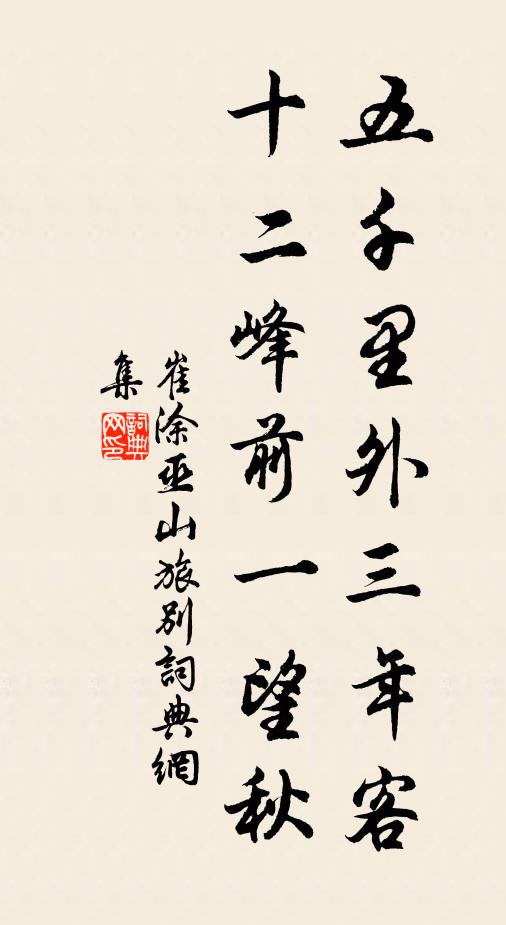 五千里外三年客
十二峰前一望秋
崔涂巫山旅别詞典網
集
詞典网印